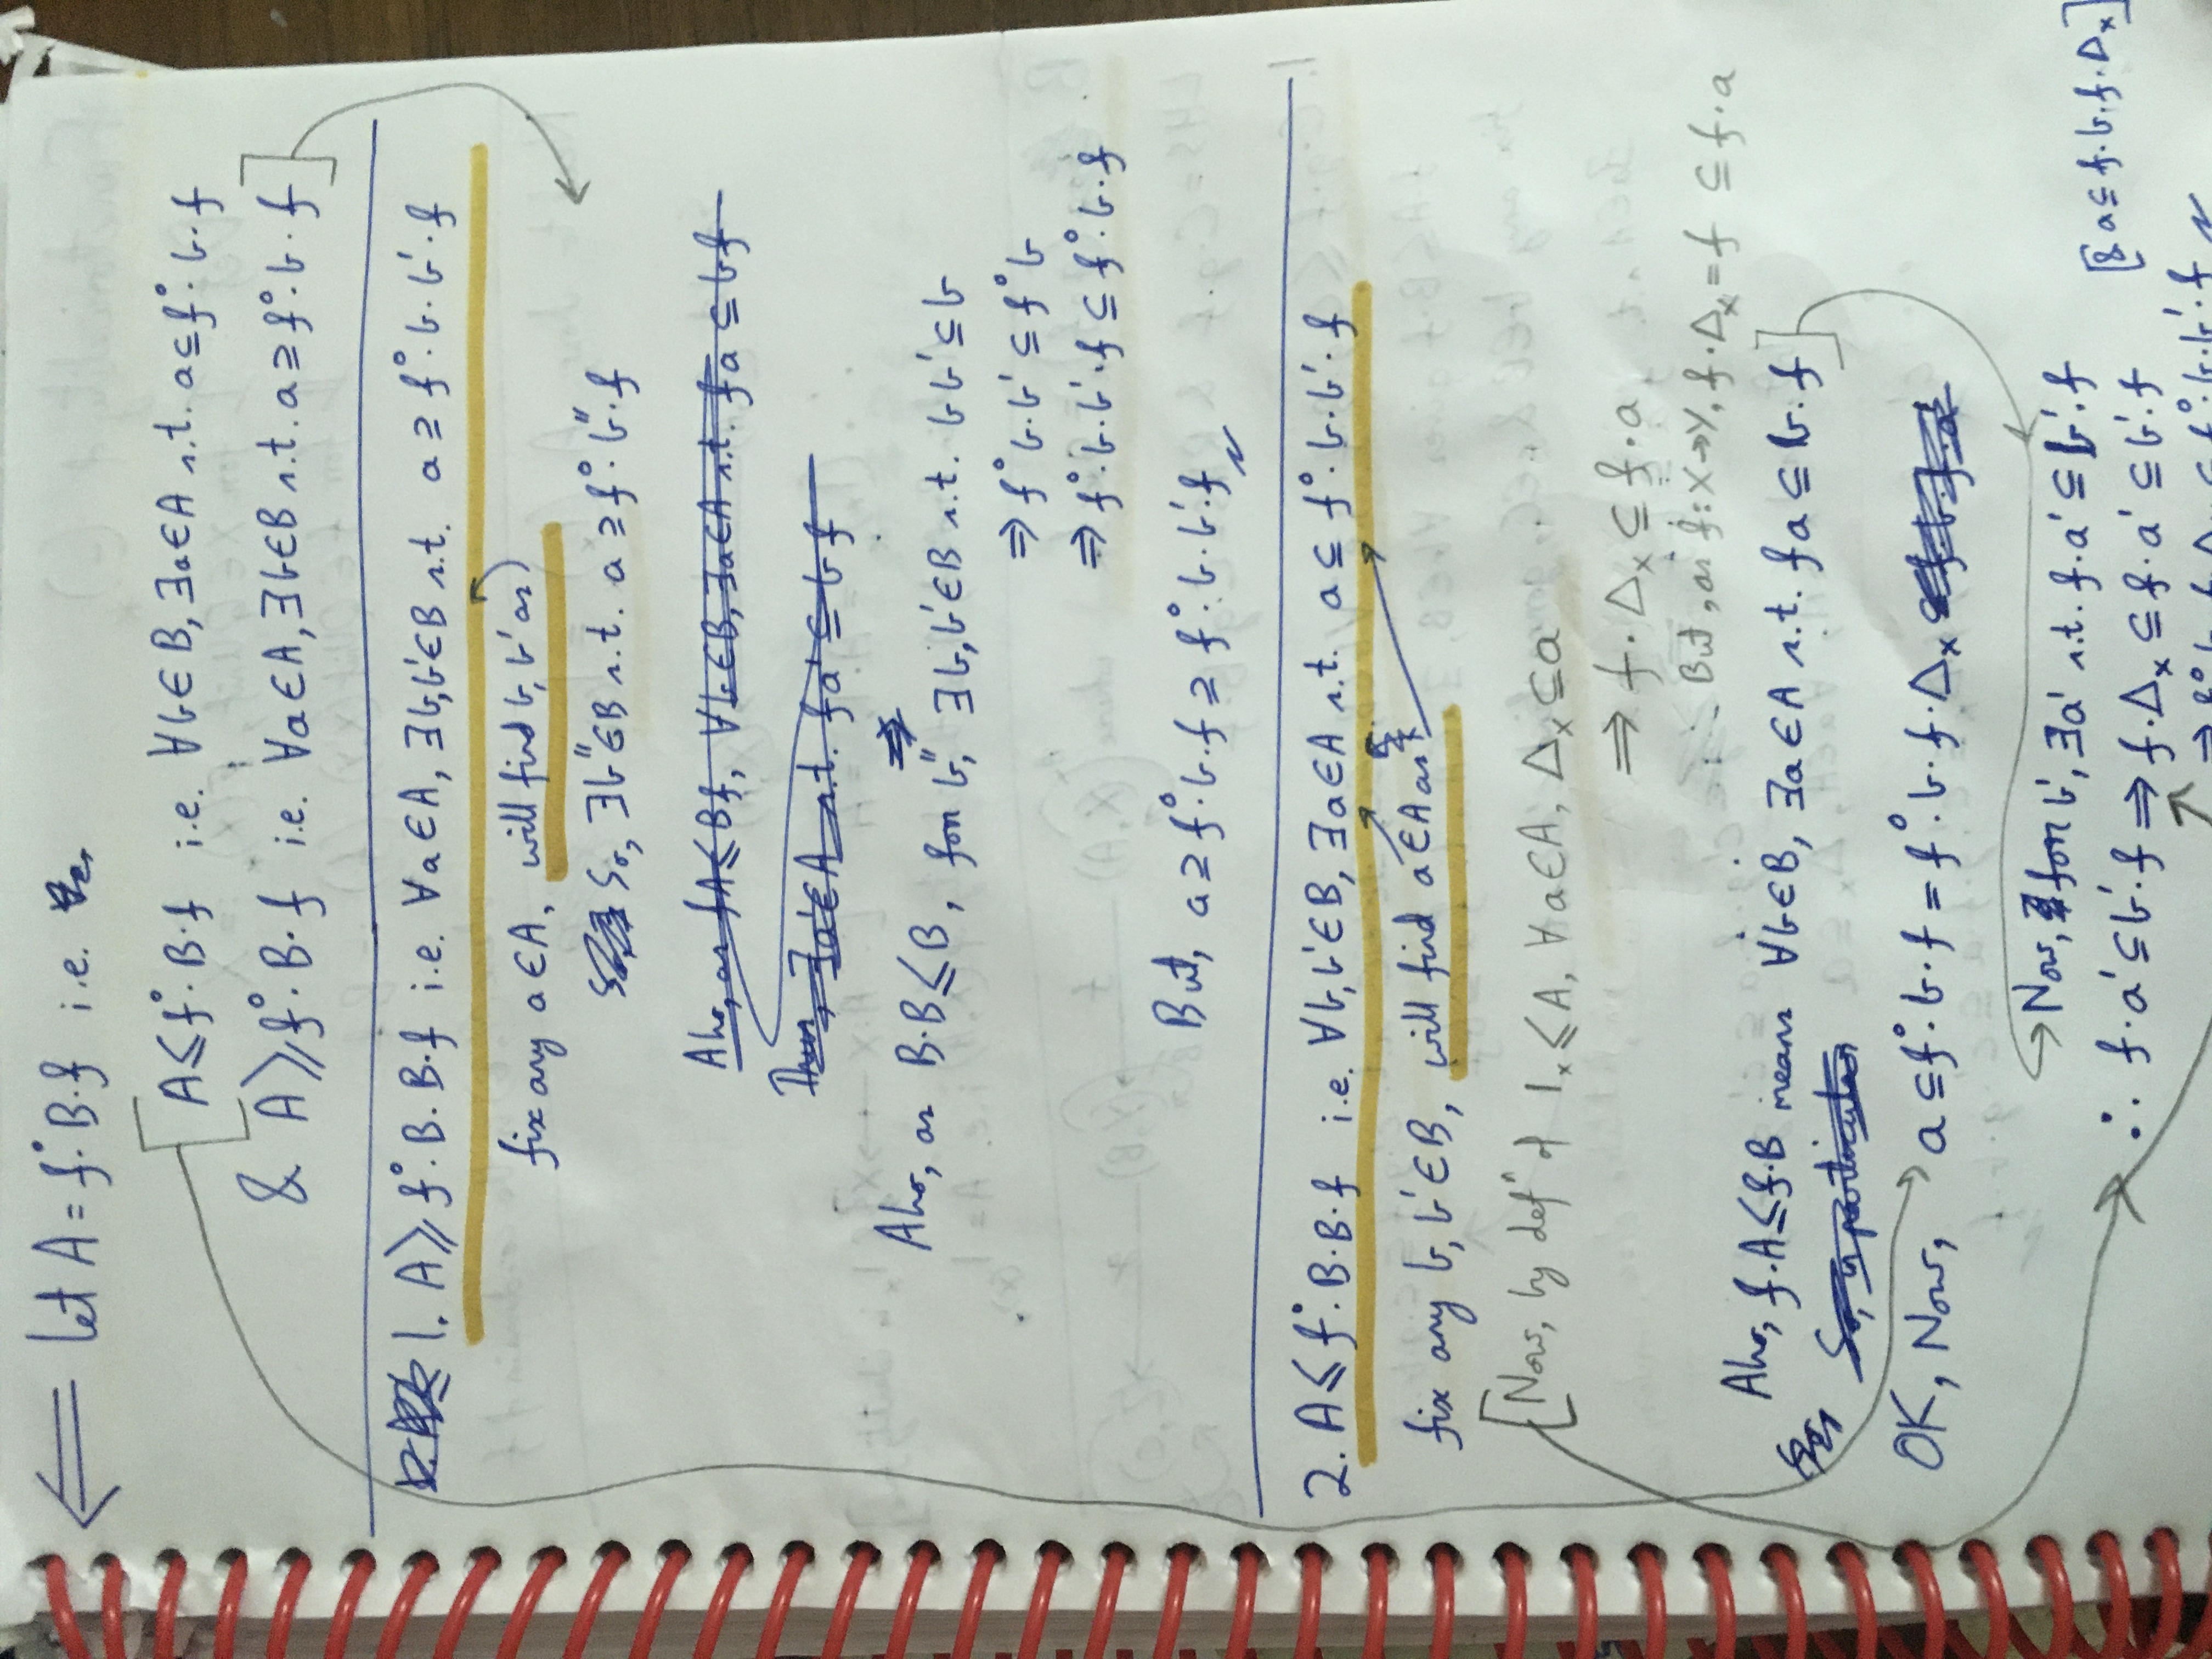 ⇐ let A = f°. B. f i.e.
[A ≤ f°. B. f i.e. ∀b∈B, ∃a∈A s.t. a ⊆ f°. b. f
& A ≥ f°. B. f i.e. ∀a∈A, ∃b∈B s.t. a ⊇ f°. b. f]
1. A ≥ f°. B. B. f i.e. ∀a∈A, ∃b,b'∈B s.t. a ⊇ f°. b. b'. f
fix any a∈A, will find b, b' as
So, ∃b''∈B s.t. a ⊇ f°. b''. f
Also, as fA ≤ Bf, ∀b∈B, ∃a∈A s.t. fa ⊆ bf
Thus, ∃a'∈A s.t. fa' ⊆ bf
Also, as B.B ≤ B, for b'', ∃b,b'∈B s.t. bb' ⊆ b
⇒ f° b. b' ⊆ f° b
⇒ f°. b. b'. f ⊆ f°. b. f
But, a ⊇ f°. b. f ⊇ f°. b. b'. f
2. A ≤ f°. B. B. f i.e. ∀b,b'∈B, ∃a∈A s.t. a ⊆ f°. b. b'. f
fix any b, b'∈B, will find a∈A as
[Now, by defⁿ of 1ₓ ≤ A, ∀a∈A, Δₓ ⊆ a
⇒ f. Δₓ ⊆ f. a
∴ But, as f: X→Y, f. Δₓ = f ⊆ f. a
Also, f. A ≤ f. B means ∀b∈B, ∃a∈A s.t. fa ⊆ b. f]
So, in particular
OK, Now, a ⊆ f°. b. f = f°. b. f. Δₓ
Now, for b', ∃a' s.t. f. a' ⊆ b'. f
[& a ⊆ f. b. f. Δₓ]
∴ f. a' ⊆ b'. f ⇒ f. Δₓ ⊆ f. a' ⊆ b'. f
⇒ f° b. f. Δₓ ⊆ f°. b. b'. f